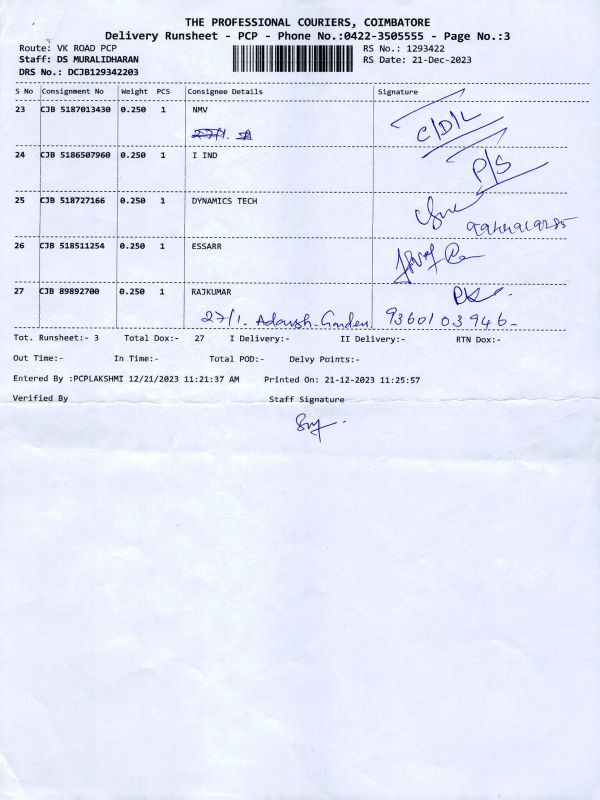 THE PROFESSIONAL COURIERS, COIMBATORE
Delivery Runsheet - PCP - Phone No.:0422-3505555 - Page No.:3
Route: VK ROAD PCP
RS No.: 1293422
Staff: DS MURALIDHARAN
RS Date: 21-Dec-2023
DRS No.: DCJB129342203
S No Consignment No Weight PCS Consignee Details Signature
23 CJB 5187013430 0.250 1 NMV
C/D/L
24 CJB 5186507960 0.250 1 I IND
P/S
25 CJB 518727166 0.250 1 DYNAMICS TECH
26 CJB 518511254 0.250 1 ESSARR
27 CJB 89892700 0.250 1 RAJKUMAR
27/1. Adarsh Garden. 9360103946-
Tot. Runsheet:- 3 Total Dox:- 27 I Delivery:- II Delivery:- RTN Dox:-
Out Time:- In Time:- Total POD:- Delvy Points:-
Entered By :PCPLAKSHMI 12/21/2023 11:21:37 AM Printed On: 21-12-2023 11:25:57
Verified By Staff Signature